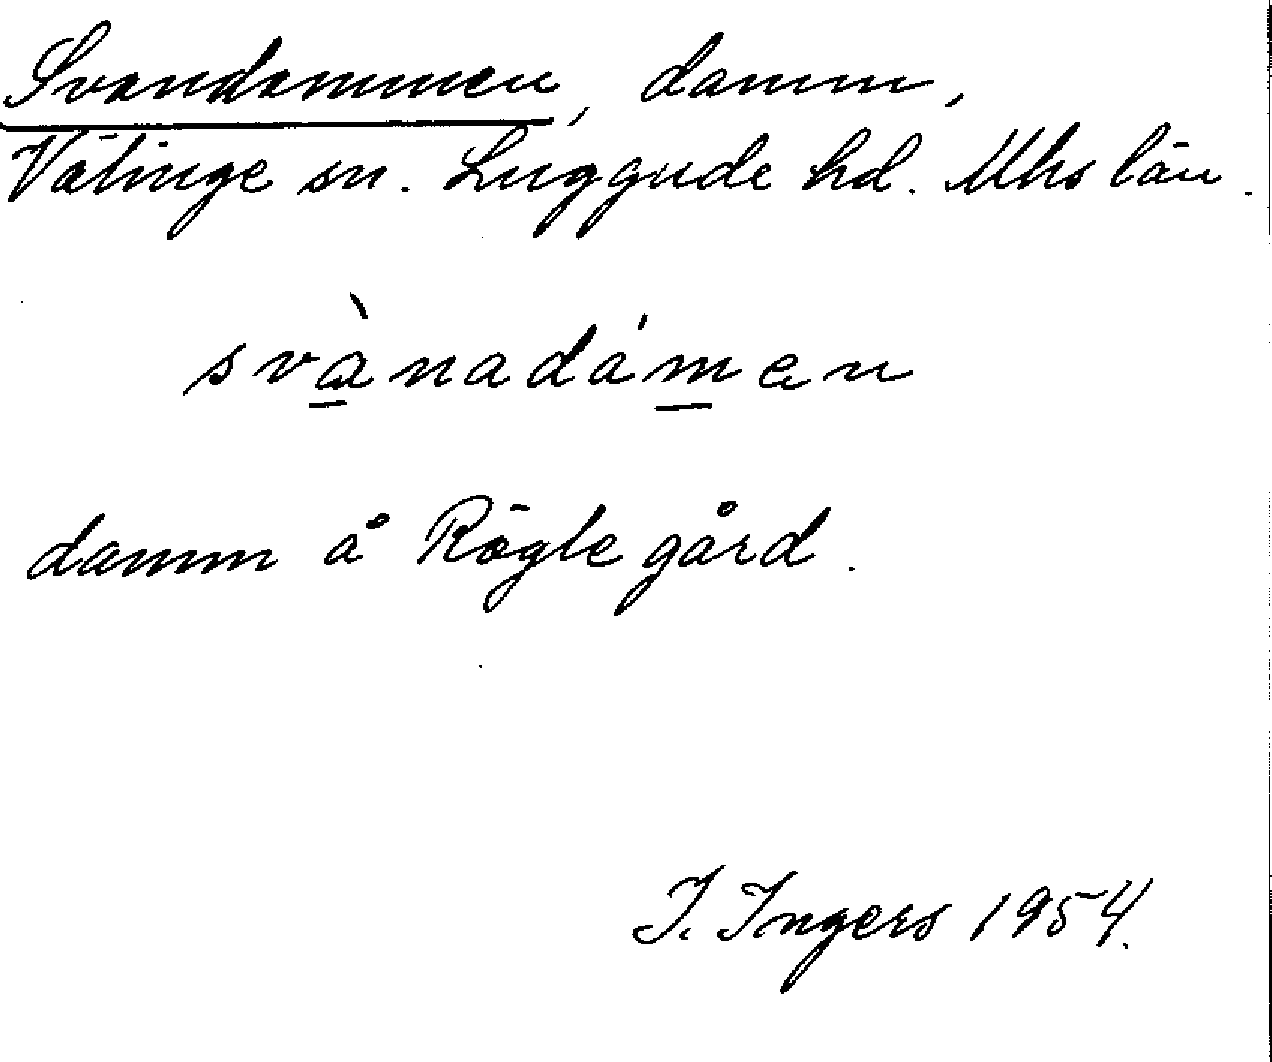 Svandammen, damm,
Välinge sn. Luggude hd. Mhs län.
svànadámen
damm å Rögle gård.
I. Ingers 1954.